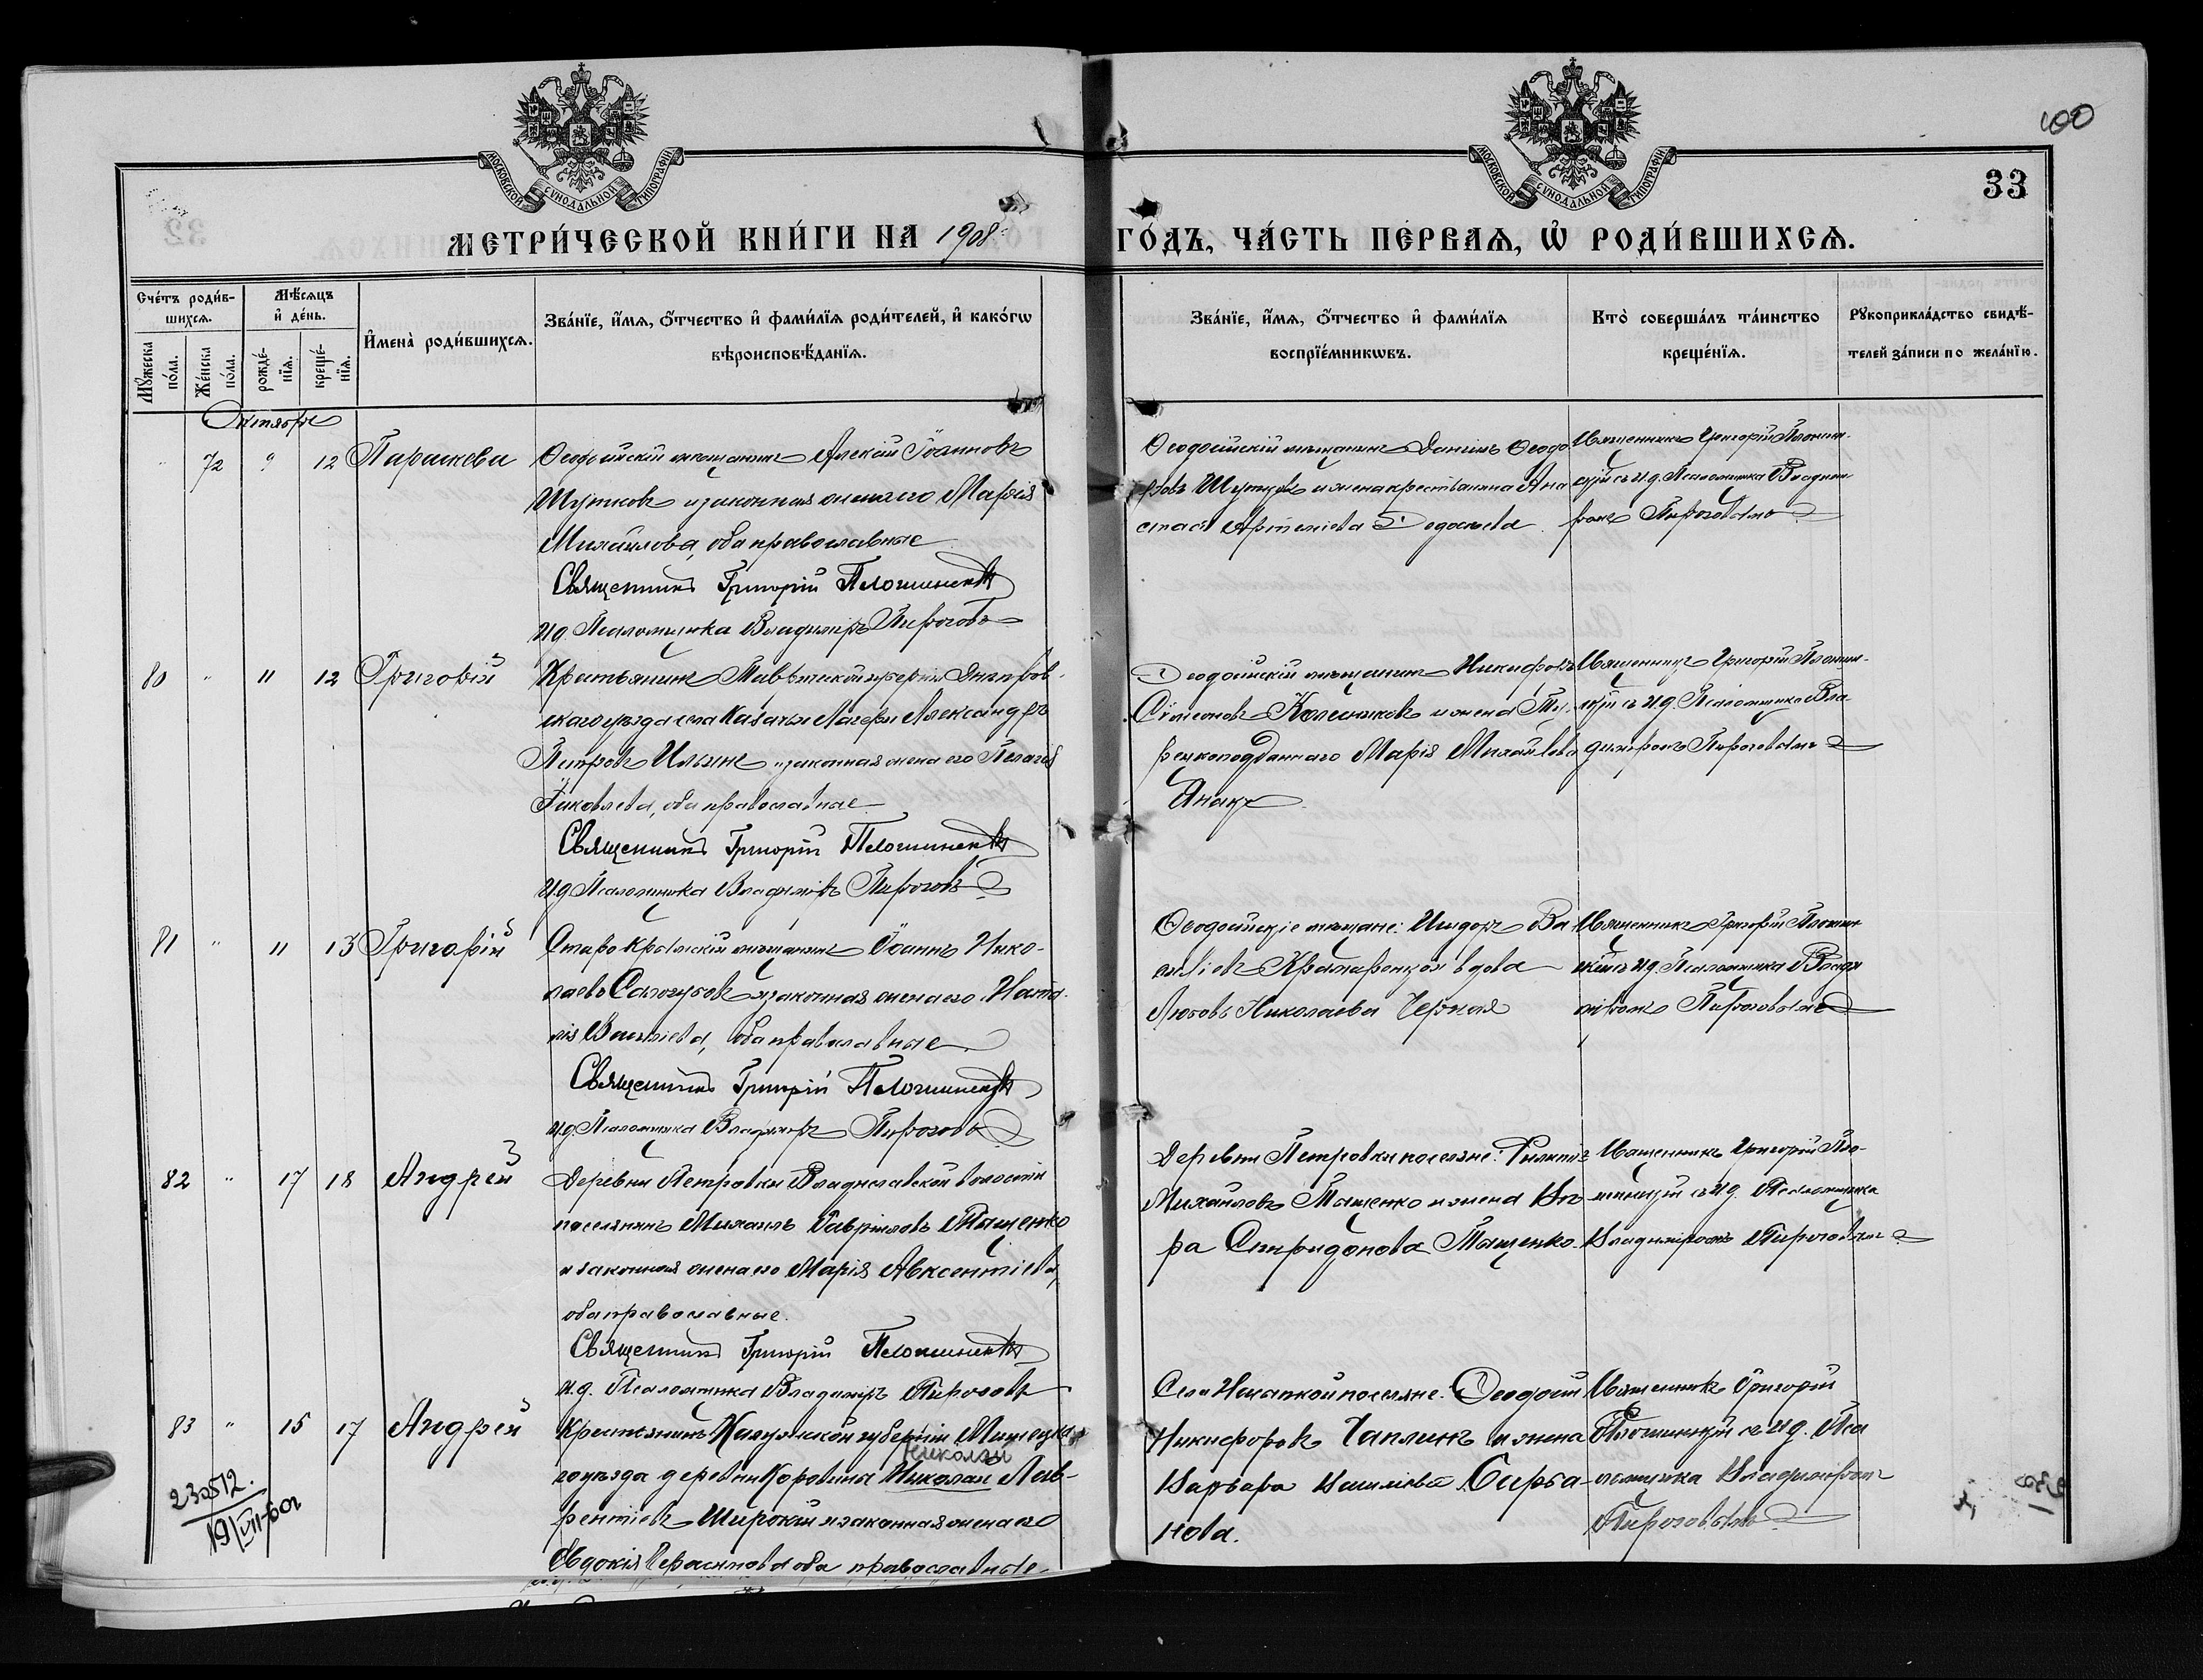 100
33
МОСКОВСКОЙ СѴНОДАЛЬНОЙ ТИПОГРАФІИ
МОСКОВСКОЙ СѴНОДАЛЬНОЙ ТИПОГРАФІИ
МЕТРИ́ЧЕСКОЙ КНИ́ГИ НА 1908 ГО́ДЪ, ЧА́СТЬ ПЕ́РВАѦ, Ѡ РОДИ́ВШИХСѦ.
Сче́тъ роди́в-
шихсѧ.
Мꙋ́жеска
по́ла.
Же́нска
по́ла.
Мѣ́сѧцъ
и де́нь.
рожде́-
нїѧ.
креще́-
нїѧ.
Имена̀ роди́вшихсѧ.
Зва́нїе, и́мѧ, о́тчество и фами́лїѧ роди́телей, и како́гѡ
вѣроисповѣ́данїѧ.
Зва́нїе, и́мѧ, о́тчество и фами́лїѧ
воспрїе́мникѡвъ.
Кто̀ соверша́лъ та́инство
креще́нїѧ.
Рꙋкоприкла́дство свидѣ́-
телей за́писи по жела́нїю.
Октябрь
" 72 9 12 Параскева
Ѳеодосійскій мѣщанинъ Алексій Іоанновъ
Шутковъ и законная жена его Марія
Михайлова, оба православные
Священникъ Григорій
и.д. Псаломщика Владиміръ Пироговъ
Ѳеодосійскій мѣщанинъ Даніилъ Ѳеодо-
ровъ и жена крестьянина Ана-
стасія Артеміева
Священникъ Григорій
съ и.д. Псаломщика Владими-
ромъ Пироговымъ
80 " 11 12 Григорій
Крестьянинъ Таврической губерніи Днѣпров-
скаго уѣзда села Казачьи Лагери Александръ
Петровъ Ильинъ и законная жена его Пелагія
Іаковлева, оба православные
Священникъ Григорій
и.д. Псаломщика Владиміръ Пироговъ
Ѳеодосійскій мѣщанинъ Никифоръ
Сѵмеоновъ Колесниковъ и жена Ту-
рецкоподданнаго Марія Михайлова
Священникъ Григорій
съ и.д. Псаломщика Вла-
диміромъ Пироговымъ
81 " 11 13 Григорій
Старокрымскій мѣщанинъ Іоаннъ Нико-
лаевъ и законная жена его Ната-
лія Василіева, оба православные
Священникъ Григорій
и.д. Псаломщика Владиміръ Пироговъ
Ѳеодосійскіе мѣщане: Исидоръ Ва-
силіевъ и вдова
Любовь Николаева Черная
Священникъ Григорій
съ и.д. Псаломщика Влади-
міромъ Пироговымъ
82 " 17 18 Андрей
Деревни Петровки Владиславской волости
поселянинъ Михаилъ Гавріиловъ Тащенко
и законная жена его Марія Авксентіева,
оба православные.
Священникъ Григорій
и.д. Псаломщика Владиміръ Пироговъ
Деревни Петровки поселяне: Филиппъ
Михайловъ Тащенко и жена
Спиридонова Тащенко.
Священникъ Григорій
съ и.д. Псаломщика
Владиміромъ Пироговымъ
83 " 15 17 Андрей
Крестьянинъ Калужской губерніи
уѣзда деревни Коровина Николай Лав-
Николай
рентіевъ Широкій и законная жена его
Евдокія Герасимова оба православные
Села поселяне: Ѳеодосій
Никифоровъ Чаплинъ и жена
Варвара Василіева
нова.
Священникъ Григорій
съ и.д. Пса-
ломщика Владиміромъ
Пироговымъ
230512.
19/VII-60г